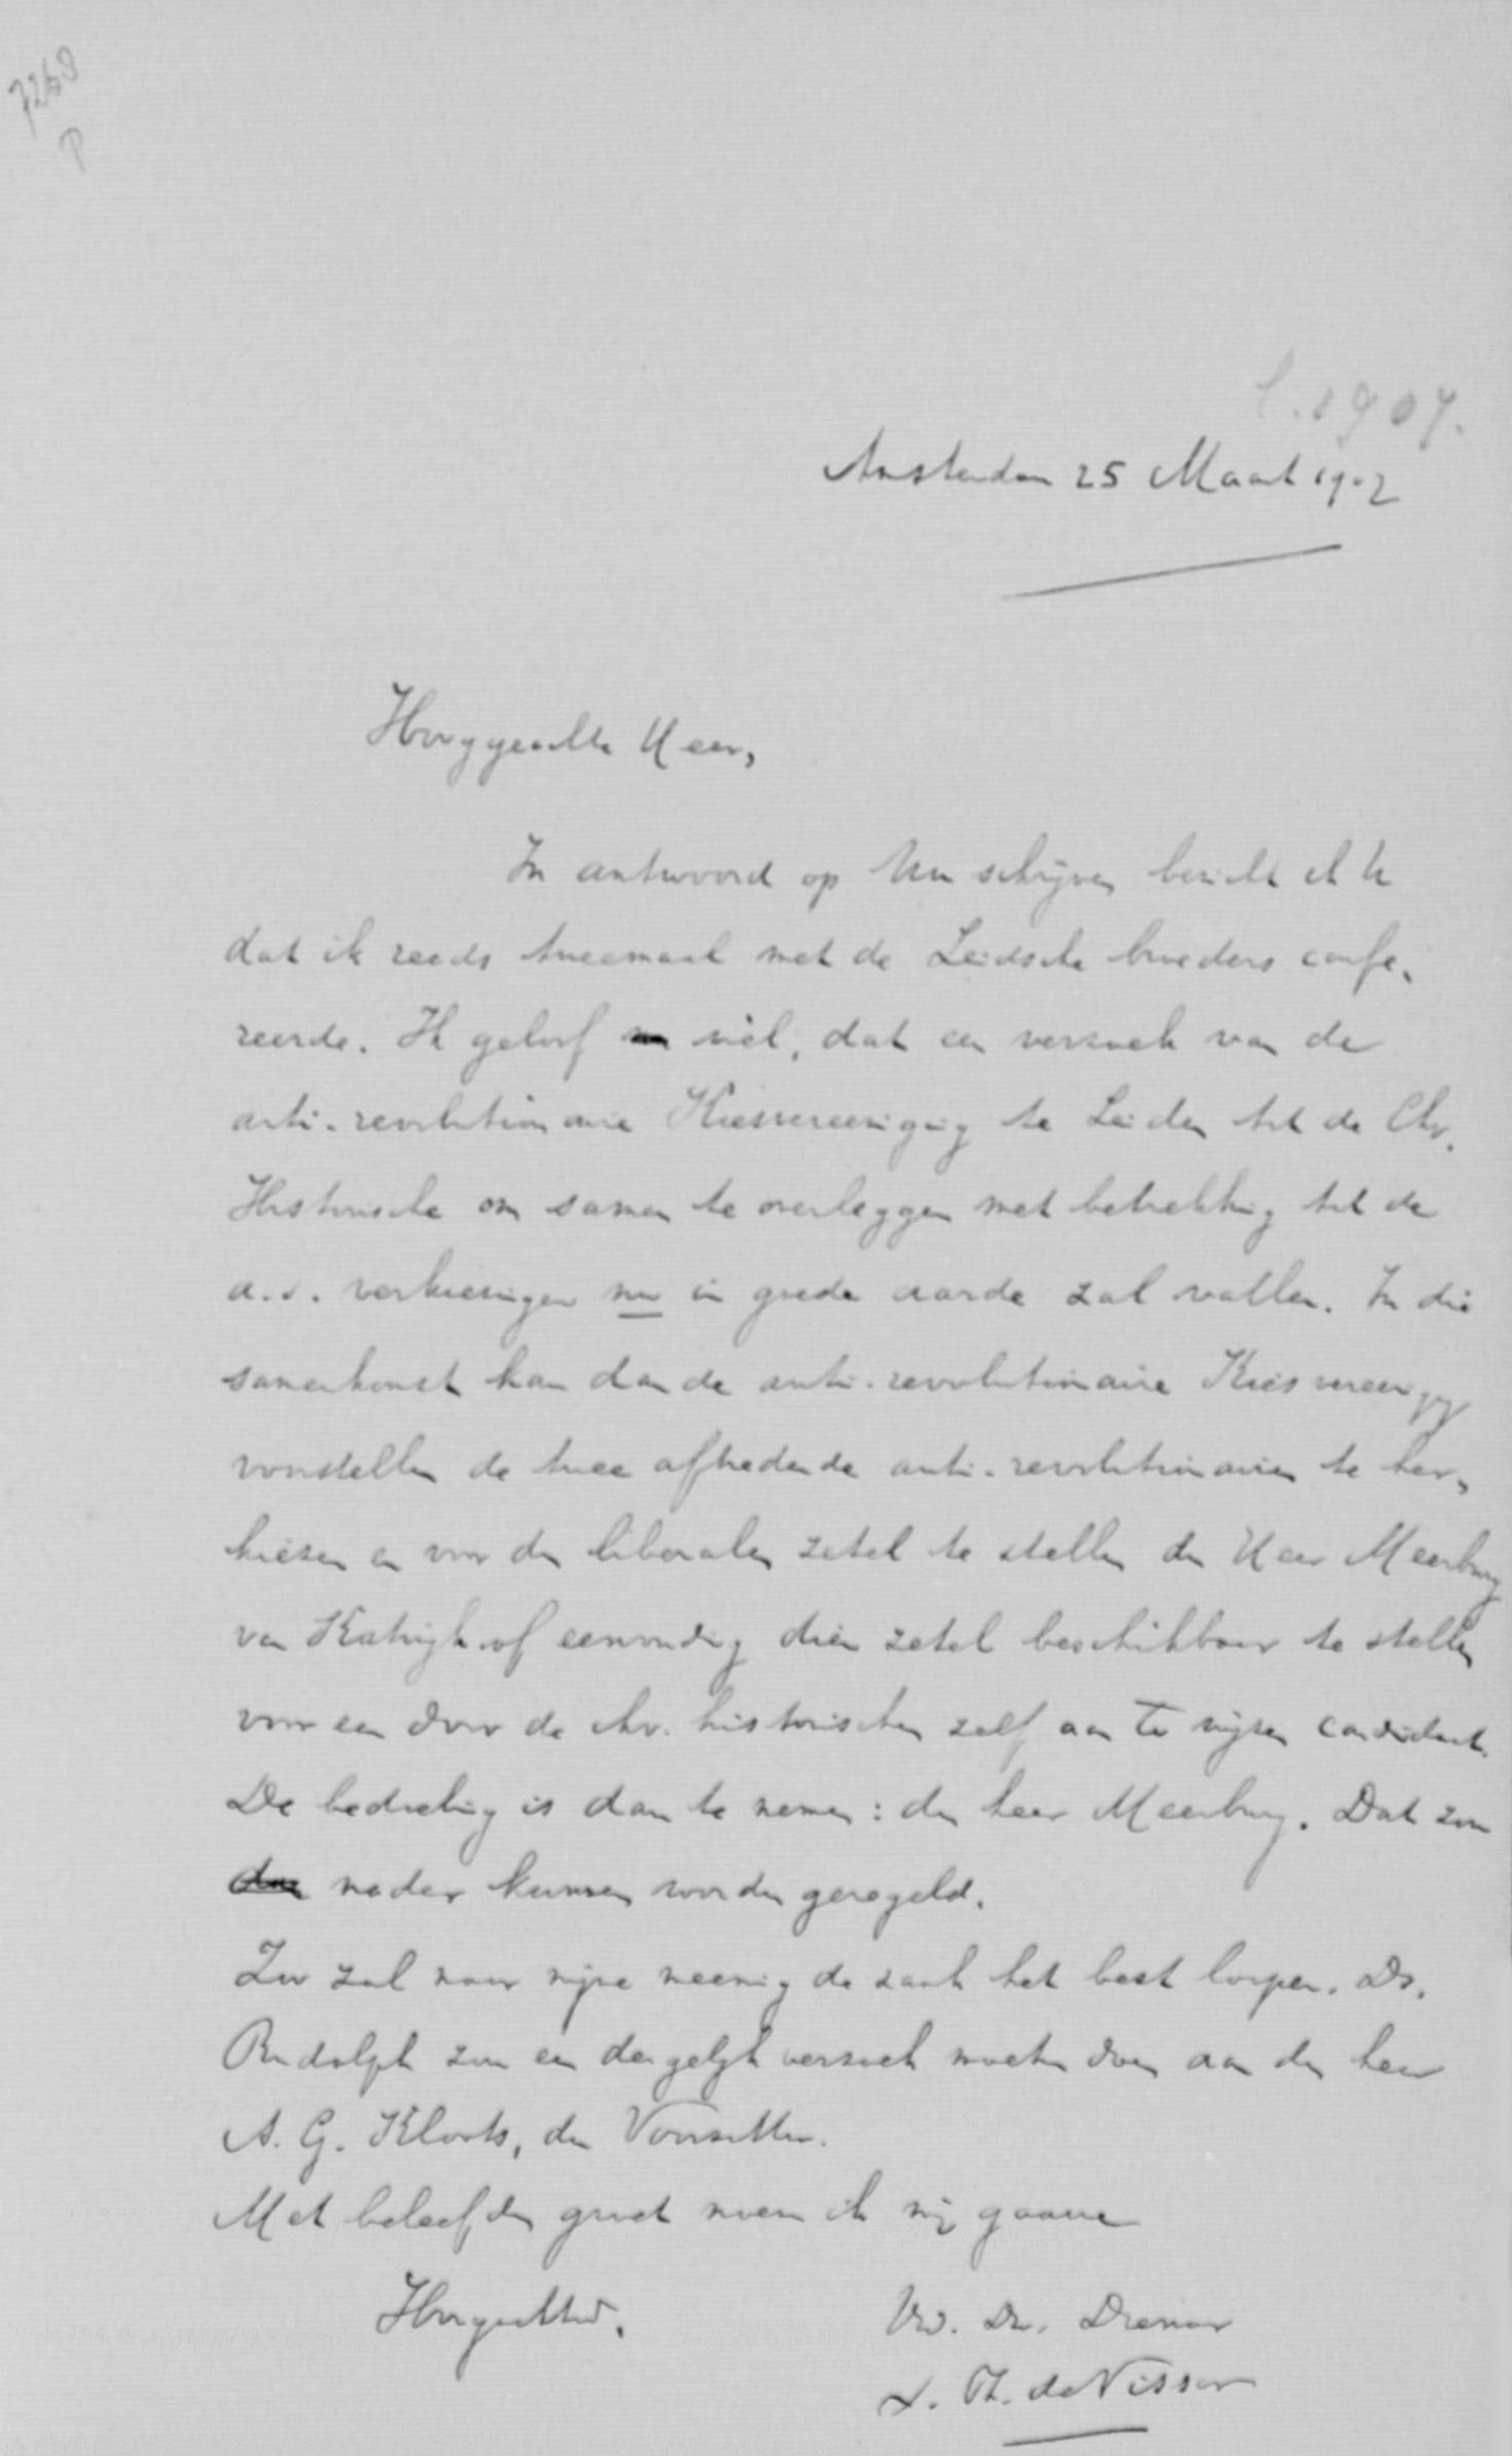 7268
P
1907.
Amsterdam 25 Maart 1907
Hooggeachte Heer,
In antwoord op Uw schrijven bericht ik U
dat ik reeds tweemaal met de Leidsche broeders confe-
reerde. Ik geloof wèl, dat een verzoek van de
anti-revolutionaire Kiesvereeniging te Leiden tot de Chr.
Historische om samen te overleggen met betrekking tot de
a.s. verkiezingen nu in goede aarde zal vallen. In die
samenkomst kan dan de anti-revolutionaire Kiesvereeniging
voorstellen de twee aftredende anti-revolutionairen te her-
kiezen en voor den liberalen zetel te stellen den Heer Meerburg
van Katwijk of eenvoudig dien zetel beschikbaar te stellen
voor een door de chr. historischen zelf aan te wijzen candidaat.
De bedoeling is dan te nemen: den heer Meerburg. Dat zou
nader kunnen worden geregeld.
Zoo zal naar mijne meening de zaak het best loopen. Ds.
Rudolph zou een dergelijk verzoek moeten doen aan den heer
A. G. Kloots, den Voorzitter.
Met beleefden groet noem ik mij gaarne
Hooggeachte,
Uw. Dw. Dienaar
J. Th. de Visser